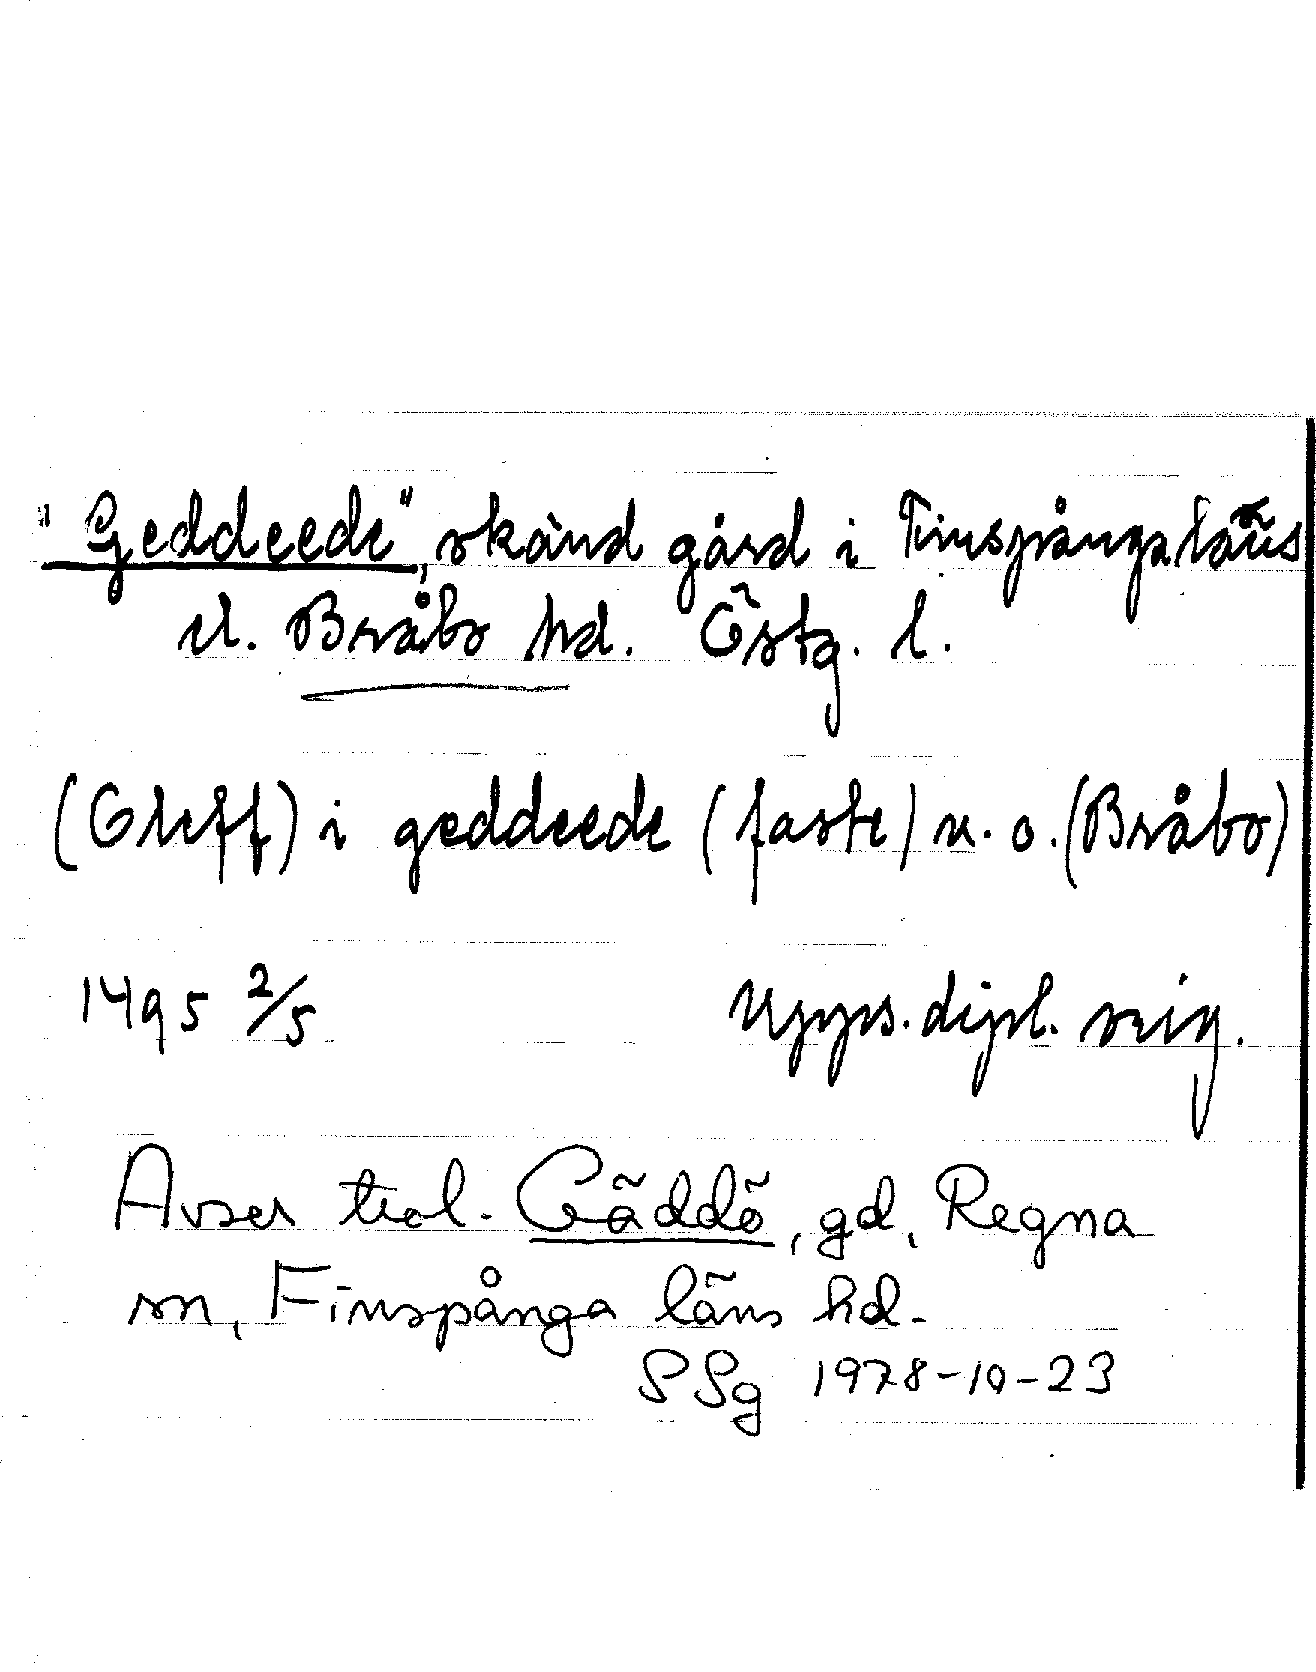 "Geddeede", okänd gård i Finspånga läns
el. Bråbo hd. Östg. l.
(Oleff) i geddeede (faste) u. o. (Bråbo)
1495 2/5 Upps. dipl. reig.
Avser trol. Gäddö, gd, Regna
sn, Finspånga läns hd.
SSg 1978-10-23